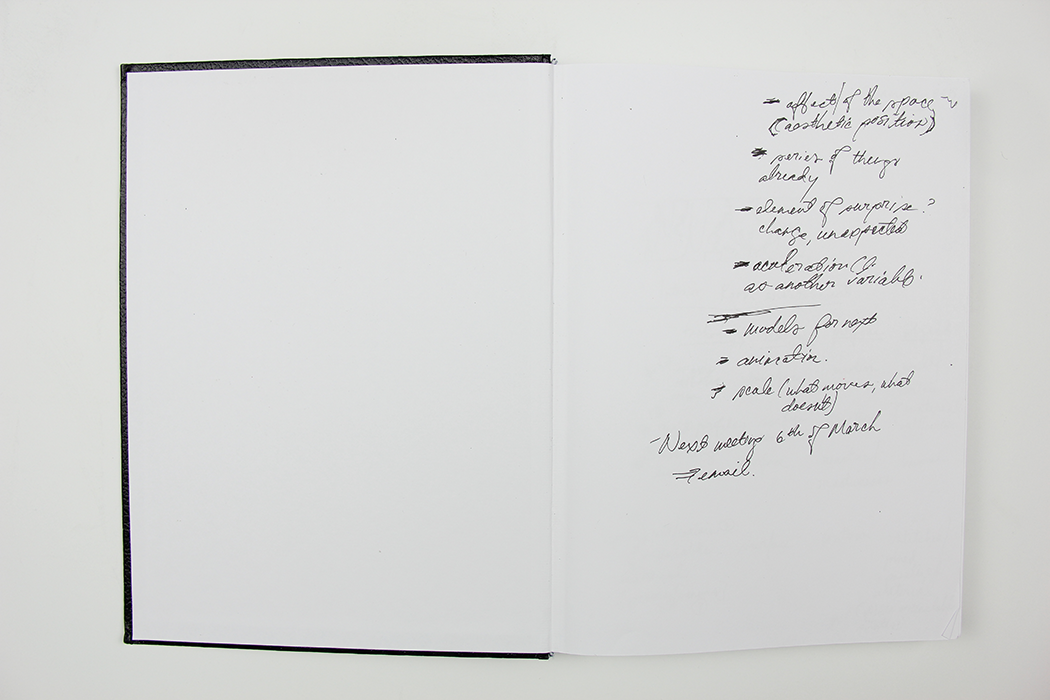 - affect/of the space ~
(aesthetic position)
- series of things
already
- element of surprise?
change, unexpected
- aceleration
as another variable.
- models for next
- animation.
- scale (what moves, what
doesn't)
- Next meeting 6th of March
email.